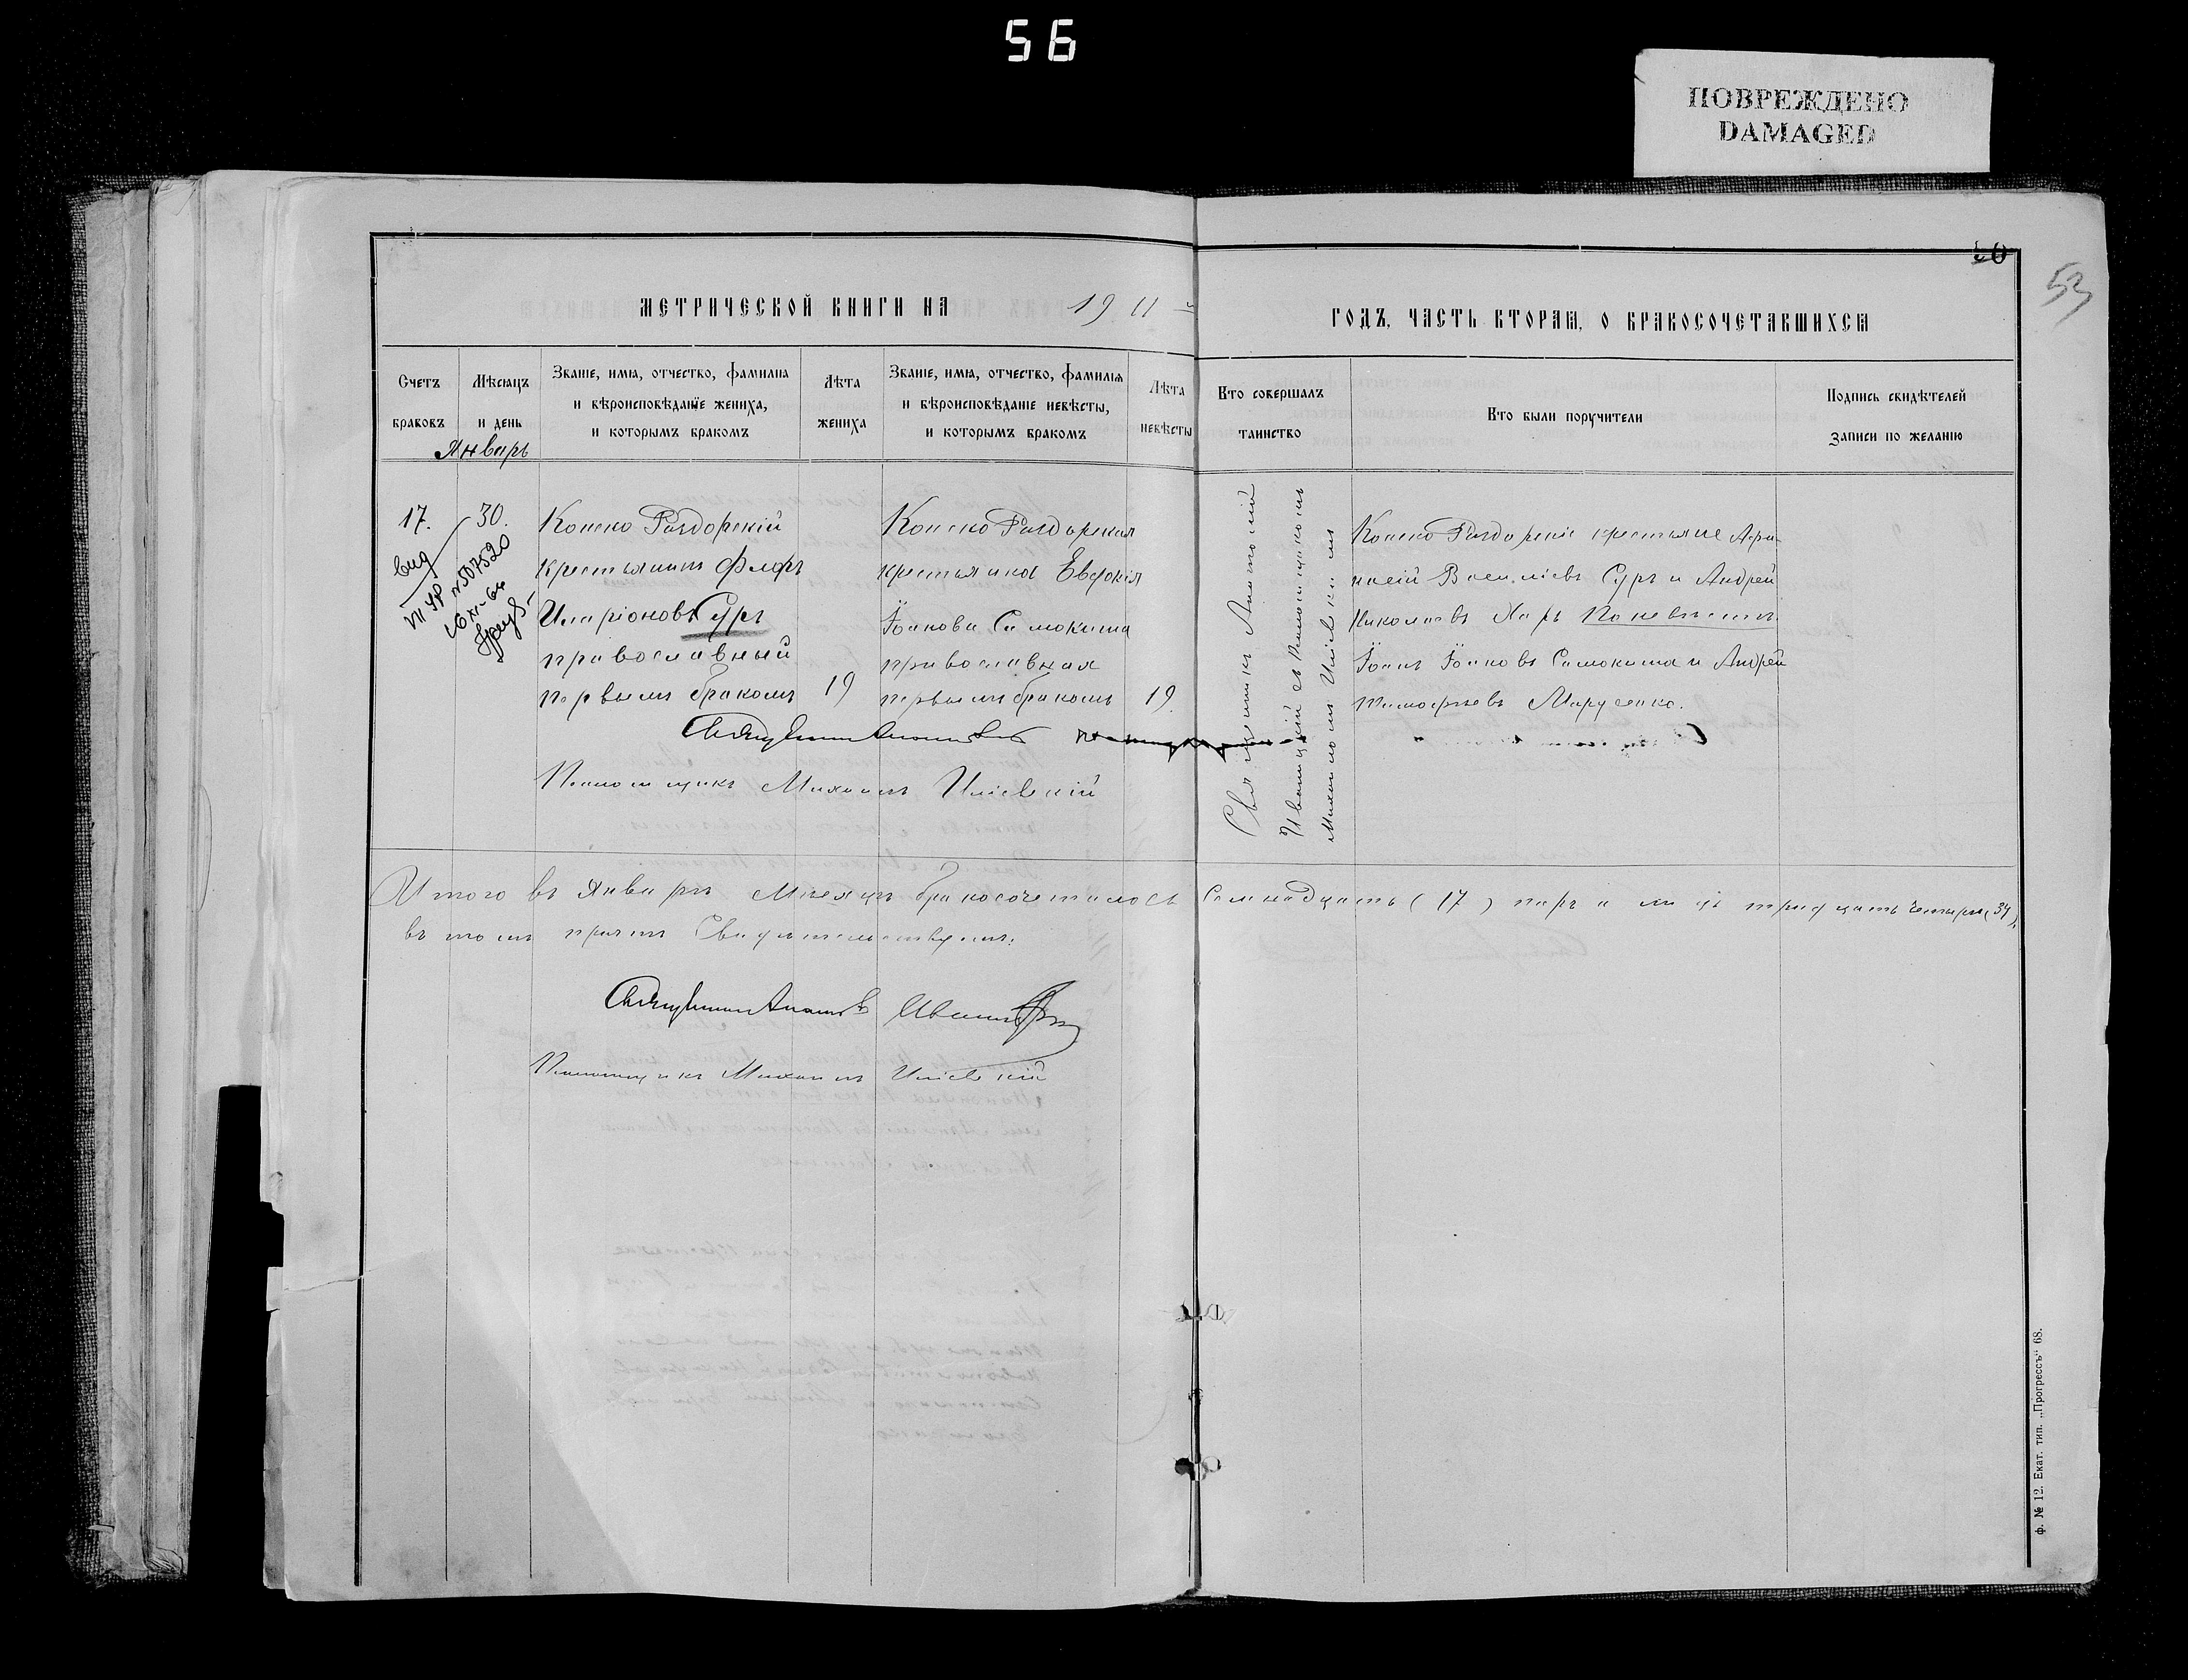 56
ПОВРЕЖДЕНО
DAMAGED
53
МЕТРИЧЕСКОЙ КНИГИ НА 1911
ГОДЪ, ЧАСТЬ ВТОРАЯ, О БРАКОСОЧЕТАВШИХСЯ
Счетъ
браковъ
Мѣсяцъ
и день
Январь
Званіе, имя, отчество, фамилія
и вѣроисповѣданіе жениха,
и которымъ бракомъ
Лѣта
жениха
Званіе, имя, отчество, фамилія
и вѣроисповѣданіе невѣсты,
и которымъ бракомъ
Лѣта
невѣсты
Кто совершалъ
таинство
Кто были поручители
Подпись свидѣтелей
записи по желанію
17.
30.
№ 507520
Конско Раздорскій
крестьянинъ Флоръ
Иларіоновъ Суръ
православный
первымъ бракомъ
19
Конско Раздорская
крестьянка Евфонія
Іоанова Самокиша
православная
первымъ бракомъ
19.
Священникъ Анатолій
Иваницкій съ Псаломщикомъ
Михаиломъ Иліевскимъ
Конско Раздорскіе крестьяне
Василіевъ Суръ и Андрей
Николаевъ Харъ По невѣстѣ
Іоанъ Іоановъ Самокиша и Андрей
Тимофѣевъ Марусенко.
Священникъ Анатолій
Псаломщикъ Михаилъ Иліевскій
Итого въ Январѣ Мѣсяцѣ бракосочеталось Семнадцать (17) паръ а лицъ тридцать четыре (34),
въ томъ причтъ Свидѣтельствуетъ:
Священникъ Анатолій Иваницкій
Псаломщикъ Михаилъ Иліевскій
ф. № 12. Екат. тип. „Прогрессъ" 68.